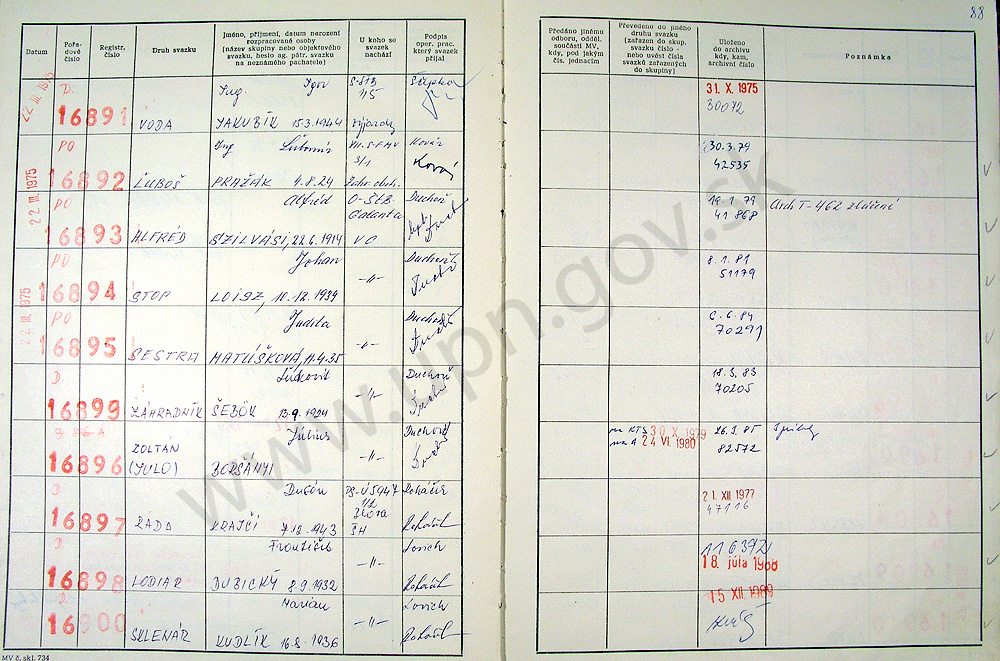 88
Datum
Pořadové číslo
Registr. číslo
Druh svazku
Jméno, příjmení, datum narození rozpracované osoby (název skupiny nebo objektového svazku, heslo ag. pátr. svazku na neznámého pachatele)
U koho se svazek nachází
Podpis oper. prac. který svazek přijal
Předáno jinému odboru, odděl. součásti MV, kdy, pod jakým čís. jednacím
Převedeno do jiného druhu svazku (zařazen do skup. svazku číslo - nebo uvést čísla svazků zařazených do skupiny)
Uloženo do archivu kdy, kam, archivní číslo
Poznámka
22 III. 1975
D.
16891
VODA
Ing. Igor
JAKUBÍK 15.3.1944
31. X. 1975
30072
PO
16892
ĽUBOŠ
Ing Ľubomír
PRAŽÁK 4.8.24
Kovár
30.3.79
42535
22 III. 1975
PO
16893
ALFRÉD
Alfréd
SZILVÁSI, 22.6.1914
O-ŠtB
Galanta
VO
Duchoň
19.1.79
41868
Arch T-462 zlúčené
PO
16894
STOP
Johan
LOISZ, 10.12.1939
-"-
Duchoň
8.1.81
51179
22 III. 1975
PO
16895
SESTRA
Judita
MATÚŠKOVÁ, 11.4.35
-"-
Duchoň
6.6.84
70291
D
16899
ZÁHRADNÍK
Ľudovít
ŠEBÖK 13.9.1904
-"-
Duchoň
18.3.83
70205
16896
ZOLTÁN
(JULO)
Július
BORSÁNYI
-"-
Duchoň
30 X 1979
24 VI. 1980
26.3.85
82572
D.
16897
RADA
Dušan
KRAJČÍ 7.12.1943
-"-
21. XII 1977
47116
D.
16898
LODIAR
František
DUBICKÝ 8.9.1932
-"-
Lovich
116372
18. júla 1988
D.
16900
SKLENÁR
Marian
KUDLÍK 16.8.1936
-"-
Lovich
15 XII. 1989
MV č. skl. 734
www.upn.gov.sk